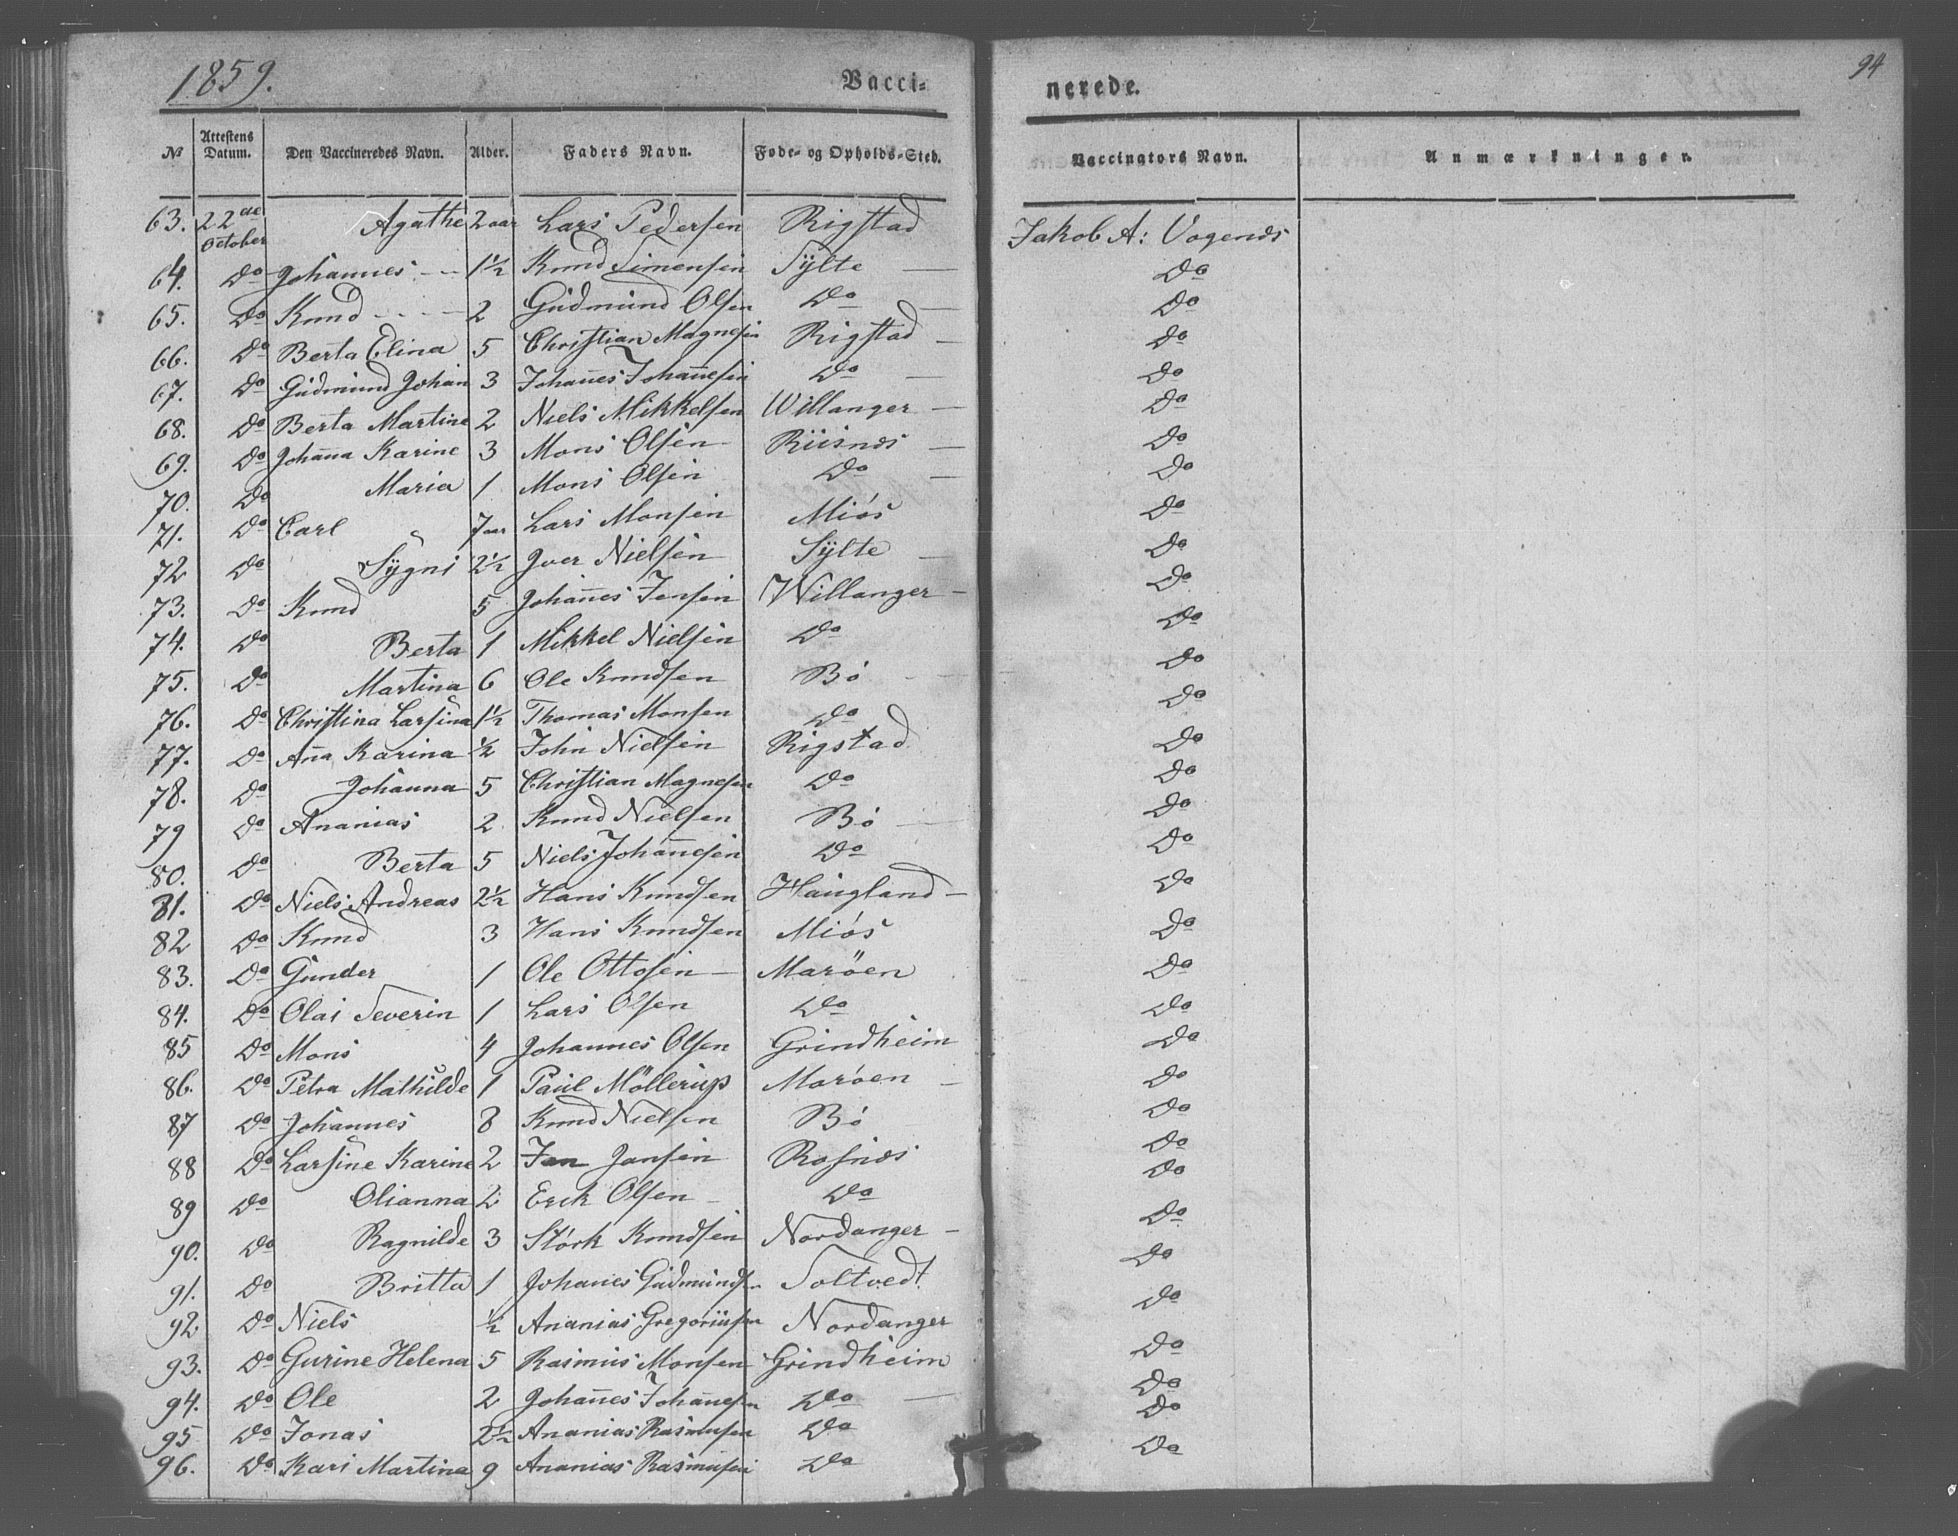 1859. Vacci- nerede. 94
No Attestens Datum. Den Vaccineredes Navn. Alder. Faders Navn. Føde- og Opholds-Sted. Vaccinators Navn. Anmærkninger.
63. 22de October Agathe 2 aar Lars Pedersen Rigstad Jakob A: Vogenes
64. Do Johannes 1½ Knud Simensen Sylte Do
65. Do Knud 2 Gudmund Olsen Do Do
66. Do Berta Elina 5 Christian Magnesen Rigstad Do
67. Do Gudmund Johan 3 Johannes Johannesen Do Do
68. Do Berta Martine 2 Niels Mikkelsen Willanger Do
69. Do Johanna Karine 3 Mons Olsen Riisnes Do
70. Do Maria 1 Mons Olsen Do Do
71. Do Carl 7 aar Lars Monsen Miøs Do
72 Do Sygni 2½ Iver Nielsen Sylte Do
73. Do Knud 5 Johannes Jensen Willanger Do
74. Do Berta 1 Mikkel Nielsen Do Do
75. Do Martina 6 Ole Knudsen Bø Do
76. Do Christina Larsina 1½ Thomas Monsen Do Do
77. Do Anna Karina ½ John Nielsen Rigstad Do
78. Do Johanna 5 Christian Magnesen Do Do
79 Do Ananias 2 Knud Nielsen Bø Do
80. Do Berta 5 Niels Johannesen Do Do
81. Do Niels Andreas 2½ Hans Knudsen Haugland Do
82 Do Knud 3 Hans Knudsen Miøs Do
83. Do Gunder 1 Ole Ottosen Marøen Do
84. Do Olai Severin 1 Lars Olsen Do Do
85 Do Mons 4 Johannes Olsen Grindheim Do
86. Do Petra Mathilde 1 Paul Möllerup Marøen Do
87 Do Johannes 8 Knud Nielsen Bø Do
88 Do Larsine Karine 2 Jan Jansen Rosnes Do
89 Do Olianna 2 Erik Olsen Do Do
90. Do Ragnilde 3 Størk Knudsen Nordanger Do
91. Do Britta 1 Johanes Gudmundsen Soltvedt Do
92 Do Niels ½ Ananias Gregoriusen Nordanger Do
93. Do Gurine Helena 5 Rasmus Monsen Grindheim Do
94. Do Ole 2 Johannes Johannesen Do Do
95 Do Jonas 2½ Ananias Rasmusen Do Do
96. Do Kari Martina 9 Ananias Rasmusen Do Do